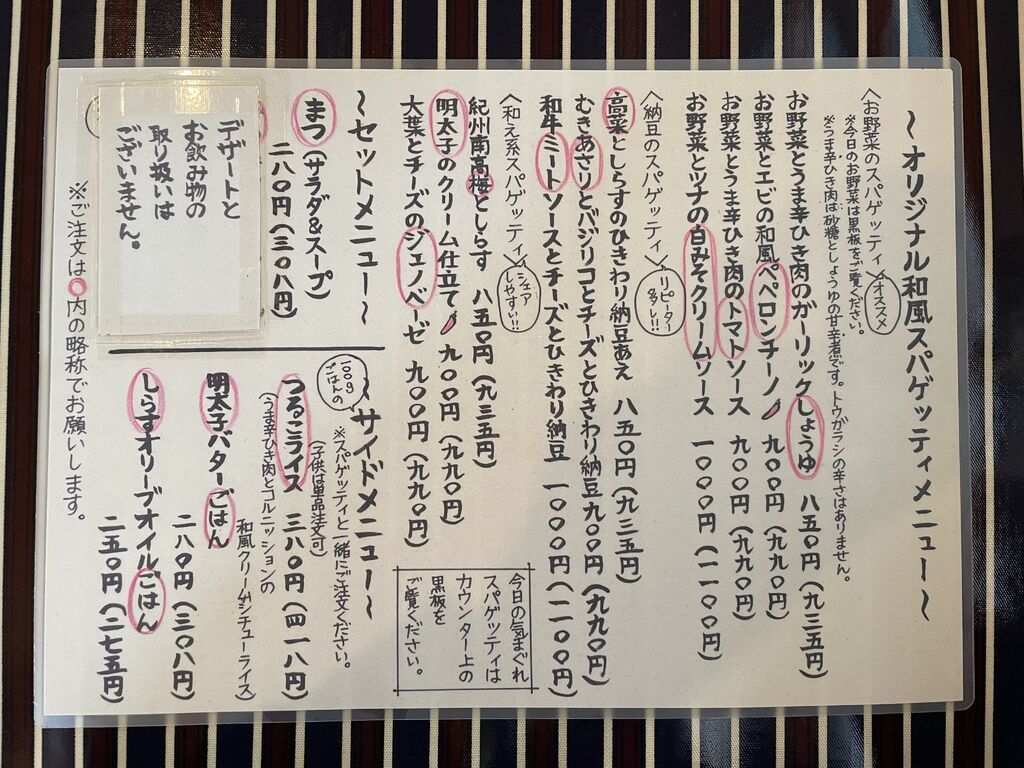 ～オリジナル和風スパゲッティメニュー～
〈お野菜のスパゲッティ〉オススメ
※今日のお野菜は黒板をご覧ください。
※うま辛ひき肉は砂糖としょうゆの甘辛煮です。トウガラシの辛さはありません。
お野菜とうま辛ひき肉のガーリックしょうゆ 八五〇円(九三五円)
お野菜とエビの和風ペペロンチーノ 九〇〇円(九九〇円)
お野菜とうま辛ひき肉のトマトソース 九〇〇円(九九〇円)
お野菜とツナの白みそクリームソース 一〇〇〇円(一一〇〇円)
〈納豆のスパゲッティ〉リピーター多し!!
高菜としらすのひきわり納豆あえ 八五〇円(九三五円)
むきあさりとバジリコとチーズとひきわり納豆 九〇〇円(九九〇円)
和牛ミートソースとチーズとひきわり納豆 一〇〇〇円(一一〇〇円)
〈和え系スパゲッティ〉シェアしやすい!!
紀州南高梅としらす 八五〇円(九三五円)
明太子のクリーム仕立て 九〇〇円(九九〇円)
大葉とチーズのジェノベーゼ 九〇〇円(九九〇円)
今日の気まぐれ
スパゲッティは
カウンター上の
黒板を
ご覧ください。
～セットメニュー～
まつ(サラダ&スープ)
二八〇円(三〇八円)
デザートと
お飲み物の
取り扱いは
ございません。
～サイドメニュー～
※スパゲッティと一緒にご注文ください。
(子供は単品注文可)
100gごはんの
つるこライス 三八〇円(四一八円)
(うま辛ひき肉とコルニッションの
和風クリームシチューライス)
明太子バターごはん
二八〇円(三〇八円)
しらすオリーブオイルごはん
二五〇円(二七五円)
※ご注文は〇内の略称でお願いします。